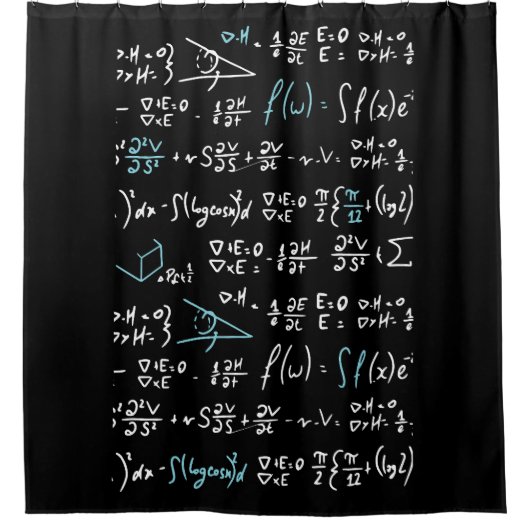 ∇·H = 1/c ∂E/∂t E=0 ∇·H=0
∇·H=0 } E= ∇×H= 1/c
∇×H=
- ∇·E=0 - 1/c ∂H/∂t f(ω) = ∫f(x)e^-
∇×E
² ∂²V/∂S² + rS ∂V/∂S + ∂V/∂t - rV = ∇·H=0
∇×H= 1/c
)² dx - ∫(log cosx)² d ∇·E=0 π/2 { π/12 + (log2)
∇×E
∇·E=0 - 1/c ∂H/∂t ∂²V/∂S² ∑
∇×E =
∇·H = 1/c ∂E/∂t E=0 ∇·H=0
∇·H=0 } E= ∇×H= 1/c
∇×H=
- ∇·E=0 - 1/c ∂H/∂t f(ω) = ∫f(x)e^-
∇×E
² ∂²V/∂S² + rS ∂V/∂S + ∂V/∂t - rV = ∇·H=0
∇×H= 1/c
)² dx - ∫(log cosx)² d ∇·E=0 π/2 { π/12 + (log2)
∇×E